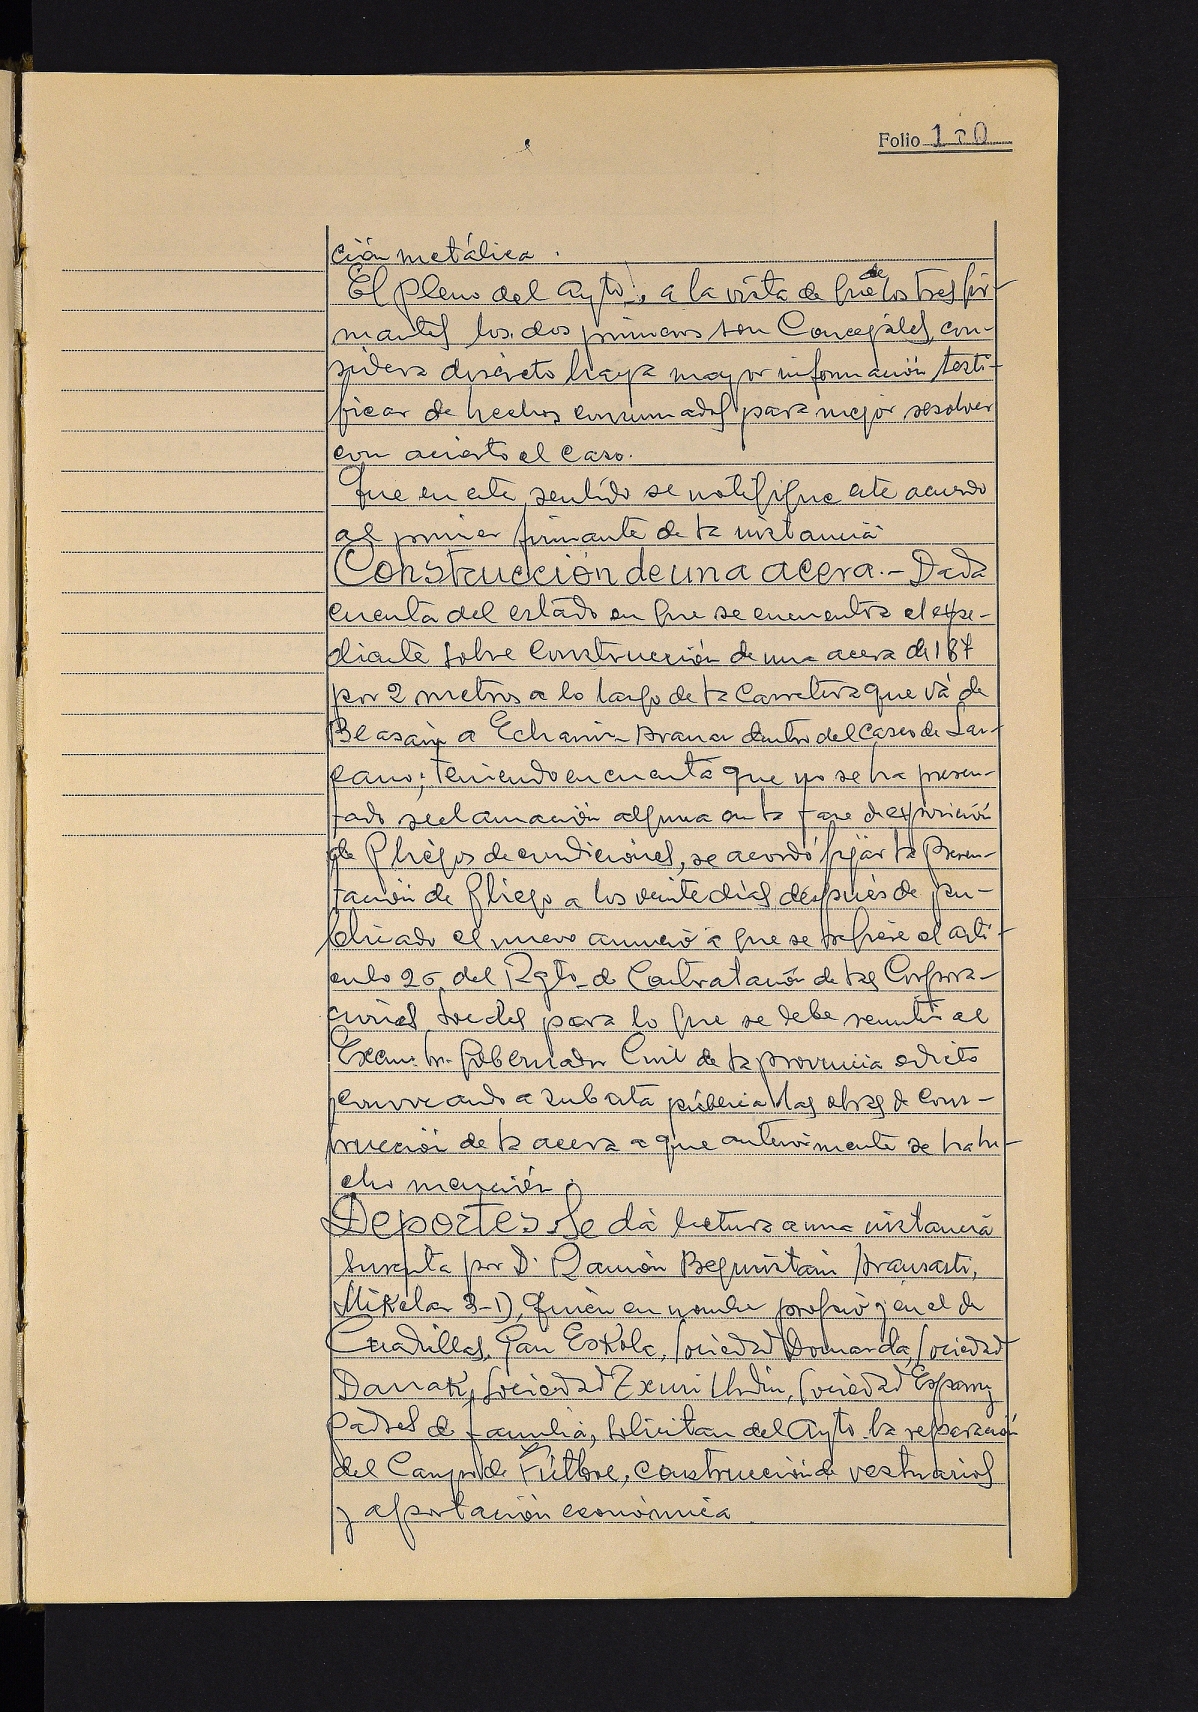 Folio 120
ción metálica.
El Pleno del Ayto., a la vista de que de los tres fir-
mantes los dos primeros son Concejales, con-
sidera discreto haya mayor información testi-
ficar de hechos consumados para mejor resolver
con acierto el caso.
Que en este sentido se notifique este acuerdo
al primer firmante de la instancia
Construcción de una acera.- Dada
cuenta del estado en que se encuentra el expe-
diente sobre Construcción de una acera de 187
por 2 metros a lo largo de la Carretera que vá de
Beasain a Echarri-Aranaz dentro del Casco de Laz-
cano; teniendo en cuenta que no se ha presen-
tado reclamación alguna en la fase de exposición
de Pliegos de condiciones, se acordó fijar la presen-
tación de pliego a los veinte días después de pu-
blicado el nuevo anuncio a que se refiere el artí-
culo 26 del Rgto. de Contratación de las Corpora-
ciones Locales para lo que se debe remitir al
Excmo. Sr. Gobernador Civil de la provincia edicto
convocando a subasta pública las obras de cons-
trucción de la acera a que anteriormente se ha he-
cho mención.
Deportes. Se dá lectura a una instancia
suscrita por D. Ramón Beguiristain Aransasti,
Mikelar 3-1), quien en nombre propio y en el de
Cuadrillas, Gau Eskola, Sociedad Domarda, Sociedad
Danak, Sociedad Txuri Urdin, Sociedad Espany
Padres de familia, solicitan del Ayto. la reparación
del Campo de Fútbol, construcción de vestuarios
y aportación económica